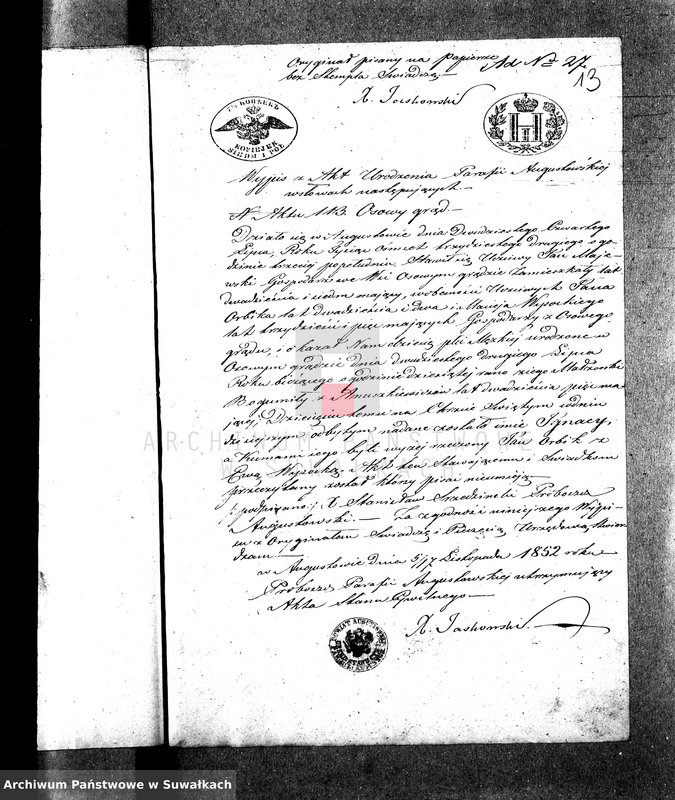 Oryginał pisany na papierze Ad Nr 27.
bez Stempla Świadczę —
13
X. Jaskowski
7½ КОПѢЕКЪ
KOPIEJEK
SIEDM I PÓŁ
H I
Wypis z Akt Urodzenia Parafii Augustowskiej
w słowach następujących —
N. Aktu 113. Osowy grąd —
Działo się w Augustowie dnia Dwudziestego Czwartego
Lipca, Roku Tysiąc ośmset trzydziestego drugiego o go-
dzinie trzeciej popołudniu, Stawił się Uczciwy Jan Maje-
wski Gospodarz we Wsi Osowym grądzie Zamieszkały lat
dwadzieścia i siedm mający, w obecności Uczciwych Jana
Orbika lat dwadzieścia i dwa i Macieja Wysockiego
lat trzydzieści i pięć mających Gospodarzy z Osowego
grądu, i okazał Nam dziecię płci Męzkiej urodzone w
Osowym grądzie dnia dwudziestego drugiego Lipca
Roku bieżącego o godzinie dziesiątej rano z jego Małżonki
Bogumiły z Januszkiewiczów lat dwadzieścia pięć ma-
jącej, Dziecięciu temu na Chrzcie Świętym w dniu
dzisiejszym odbytym nadane zostało imie Ignacy,
a Kumami jego byli wyżej rzeczony Jan Orbik z
Ewą Wysocką. Akt ten Stawającemu i Świadkom
przeczytany został który pisać nieumieją
(podpisano) X Stanisław Proboszcz
Augustowski. — Za zgodność niniejszego Wypi-
su z Oryginałem Świadczę i Pieczęcią Urzędową stwier-
dzam.—
w Augustowie dnia 5/17 Listopada 1852 roku
Proboszcz Parafii Augustowskiej utrzymujący
Akta Stanu Cywilnego —
X. Jaskowski
ARCHIWUM PAŃSTWOWE
W SUWAŁKACH
Archiwum Państwowe w Suwałkach